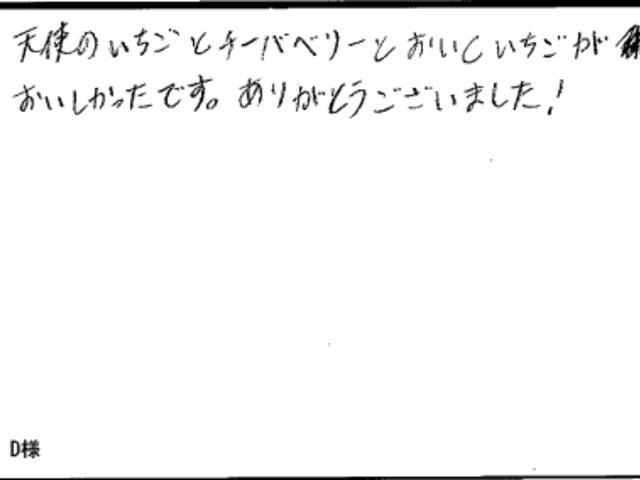 天使のいちごとチーバベリーとおいCいちごが
おいしかったです。ありがとうございました！
D様